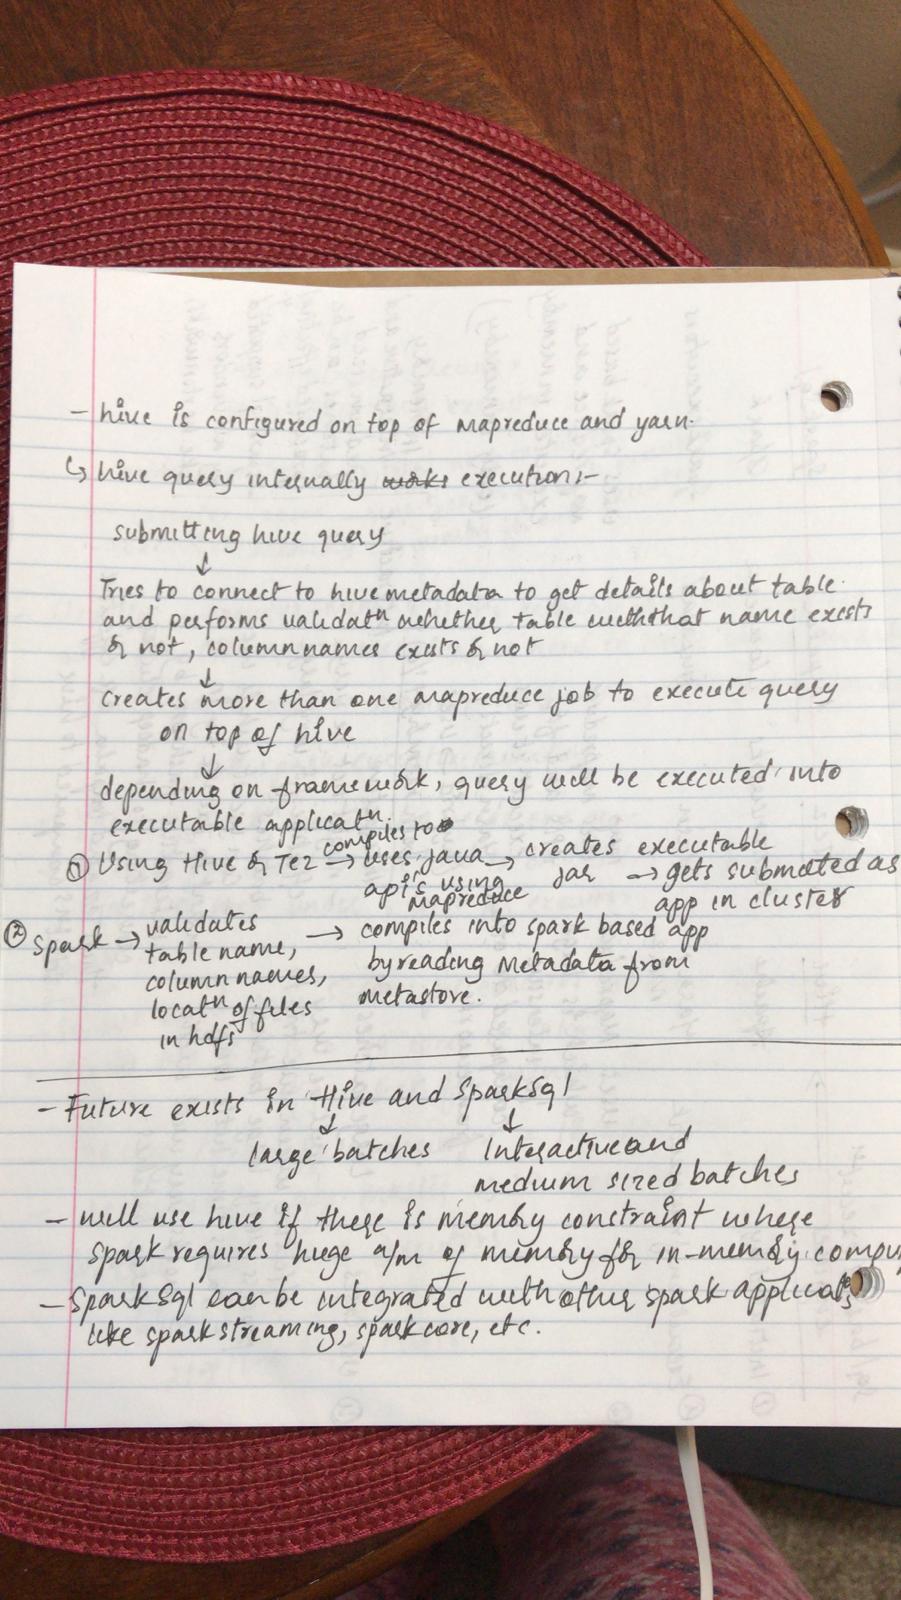 - hive is configured on top of mapreduce and yarn.
↳ hive query internally works execution:-
submitting hive query
↓
Tries to connect to hive metadata to get details about table.
and performs validatn whether table with that name exists
or not, column names exists or not
↓
creates more than one mapreduce job to execute query
on top of hive
↓
depending on framework, query will be executed into
executable applicatn.
① Using Hive or Tez → compiles to uses java api's using mapreduce → creates executable jar → gets submitted as app in cluster
② Spark → validates table name, column names, locatn of files in hdfs → compiles into spark based app by reading metadata from metastore.
- Future exists in Hive and SparkSql
↓ ↓
large batches Interactive and
medium sized batches
- will use hive if there is memory constraint where
spark requires huge a/m of memory for in-memory compu
- SparkSql can be integrated with other spark applicatns
like spark streaming, spark core, etc.